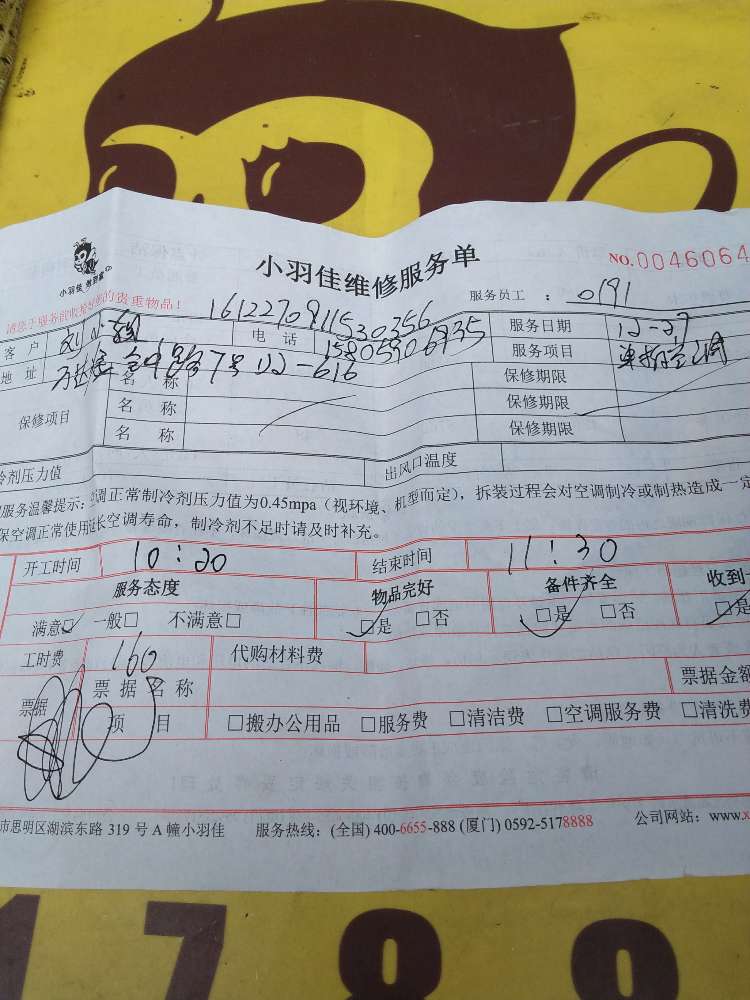 小羽佳维修服务单
NO.0046064
小羽佳 勞到家
请您于服务前收拾好您的贵重物品！
服务员工： 0191
1612270911530356
客 户 电 话 15805906935 服务日期 12-27
地 址 7号 12-616 服务项目
保修项目 名 称 保修期限
名 称 保修期限
名 称 保修期限
冷剂压力值 出风口温度
服务温馨提示：空调正常制冷剂压力值为0.45mpa（视环境、机型而定），拆装过程会对空调制冷或制热造成一定
保空调正常使用延长空调寿命，制冷剂不足时请及时补充。
开工时间 10:20 结束时间 11:30
服务态度 物品完好 备件齐全 收到
满意□ 一般□ 不满意□ □是 □否 □是 □否 □是
工时费 160 代购材料费
票据 票据名称 票据金额
项 目 □搬办公用品 □服务费 □清洁费 □空调服务费 □清洗费
市思明区湖滨东路 319 号 A 幢小羽佳 服务热线：(全国) 400-6655-888 (厦门) 0592-5178888 公司网站：www.x
1789